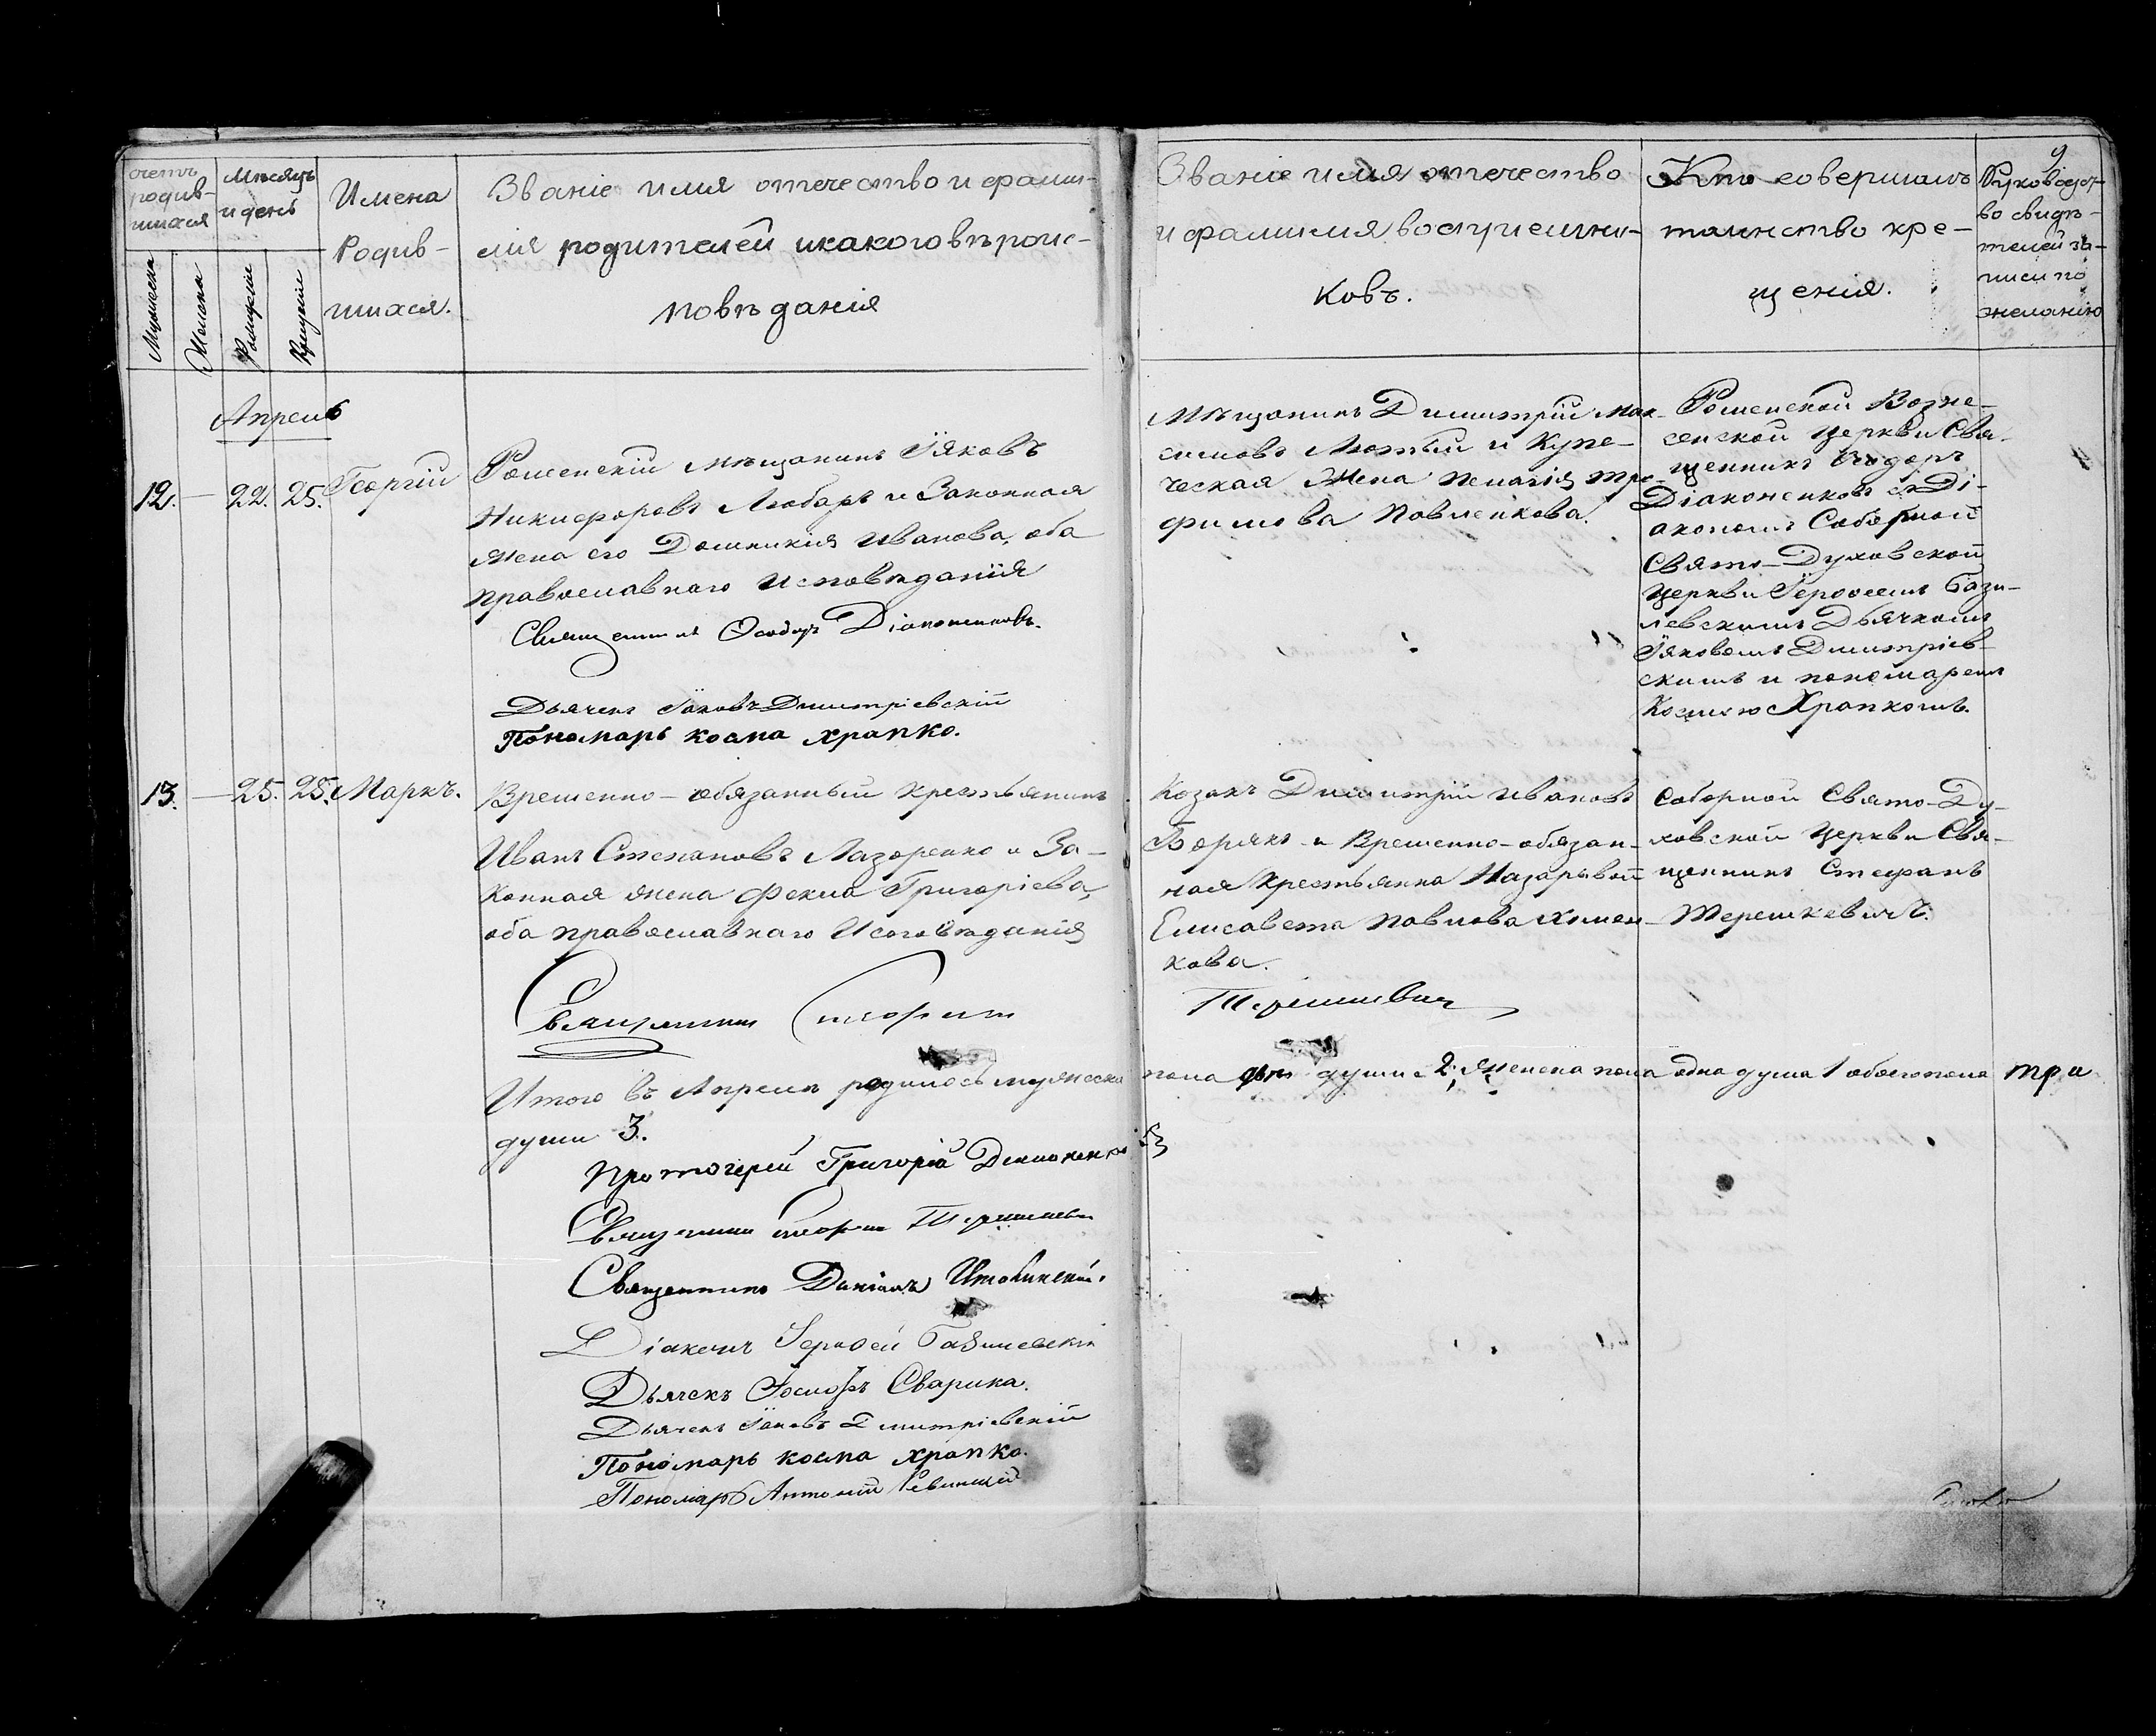 счетъ родив-
шихся
Мѣсяцъ
и день
Имена
Родив-
шихся.
Мужеска
Женска
Рожденіе
Крещеніе
Званіе имя отечество и фами-
лія родителей и какого вѣроис-
повѣданія
Званіе имя отечество
и фамилия воспріемни-
ковъ.
Кто совершалъ
таинство кре-
щенія.
9
Руководст-
во свидѣ-
телей за-
писи по
желанію
Апрель
12. — 22. 25. Георгій
Роменскій мѣщанинъ Іяковъ
Никифоровъ Любаръ и Законная
жена его Домникия Иванова, оба
православнаго Исповѣданія
Священникъ Ѳеодоръ Діаконенковъ.
Дьячекъ Іаковъ Димитріевскій
Пономарь косма храпко.
Мѣщанинъ Димитрій Мак-
симовъ Лютый и Купе-
ческая Жена Пелагія Тро-
фимова Павленкова.
Роменской Возне-
сенской церкви Свя-
щенникъ Ѳеодоръ
Діаконенковъ съ Ді-
акономъ Соборной
Свято-Духовской
Церкви Іероѳеемъ Бази-
левскимъ Дьячкомъ
Іяковомъ Димитріев-
скимъ и пономаремъ
Космою Храпкомъ.
13. — 25. 25. Маркъ.
Временно-обязанный крестьянинъ
Иванъ Степановъ Лазоренко и За-
конная жена Фекла Григоріева,
оба православнаго Исповѣданія
Священникъ Стефанъ
Козакъ Димитрій Ивановъ
Борякъ и Временно-обязан-
ная крестьянка
Елисавета Павлова Химен-
кова.
Терешкевич
Соборной Свято-Ду-
ховской Церкви Свя-
щенникъ Стефанъ
Терешкевичъ.
Итого въ Апрелѣ родилось мужеска пола двѣ души 2, женска пола одна душа 1 обоего пола три
души 3.
Протоіерей Григорій
Священникъ Стефанъ Терешкевич
Священникъ Даніилъ
Діаконъ Іероѳей Базилевскій
Дьячекъ Іосифъ Сварика.
Дьячекъ Іаковъ Димитріевскій
Пономарь косма храпко.
Пономарь Антоній